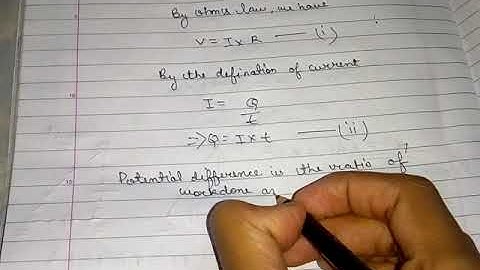 By ohm's law, we have
V = I x R —— (i)
By the defination of current
I = Q
t
=> Q = I x t —— (ii)
Potential difference is the ratio of
workdone an